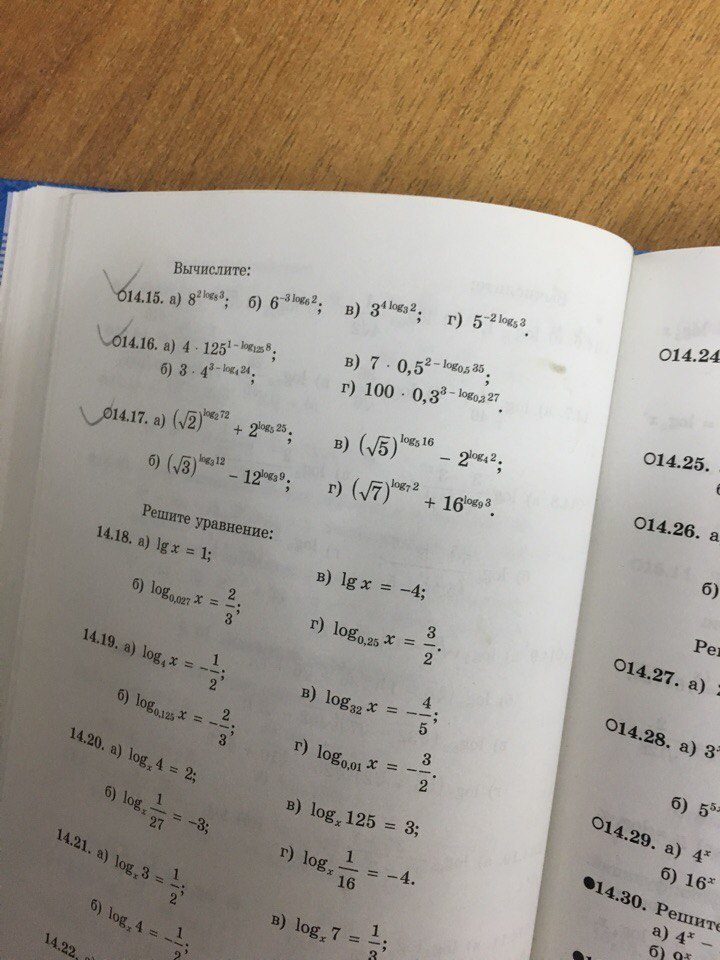 Вычислите:
○14.15. а) 8^{2 log₈ 3}; б) 6^{−3 log₆ 2}; в) 3^{4 log₃ 2}; г) 5^{−2 log₅ 3}.
○14.16. а) 4 · 125^{1 − log₁₂₅ 8}; в) 7 · 0,5^{2 − log_{0,5} 35};
б) 3 · 4^{3 − log₄ 24}; г) 100 · 0,3^{3 − log_{0,3} 27}.
○14.17. а) (√2)^{log₂ 72} + 2^{log₅ 25}; в) (√5)^{log₅ 16} − 2^{log₄ 2};
б) (√3)^{log₃ 12} − 12^{log₃ 9}; г) (√7)^{log₇ 2} + 16^{log₉ 3}.
Решите уравнение:
14.18. а) lg x = 1; в) lg x = −4;
б) log_{0,027} x = 2/3; г) log_{0,25} x = 3/2.
14.19. а) log₄ x = −1/2; в) log₃₂ x = −4/5;
б) log_{0,125} x = −2/3; г) log_{0,01} x = −3/2.
14.20. а) logₓ 4 = 2; в) logₓ 125 = 3;
б) logₓ 1/27 = −3; г) logₓ 1/16 = −4.
14.21. а) logₓ 3 = 1/2; в) logₓ 7 = 1/3;
б) logₓ 4 = −1/2;
14.22.
○14.24
○14.25.
б
○14.26. а
б)
Реш
○14.27. а)
○14.28. а) 3
б) 5
○14.29. а) 4^x
б) 16^x
●14.30. Решите
а) 4^x −
б) 9^x